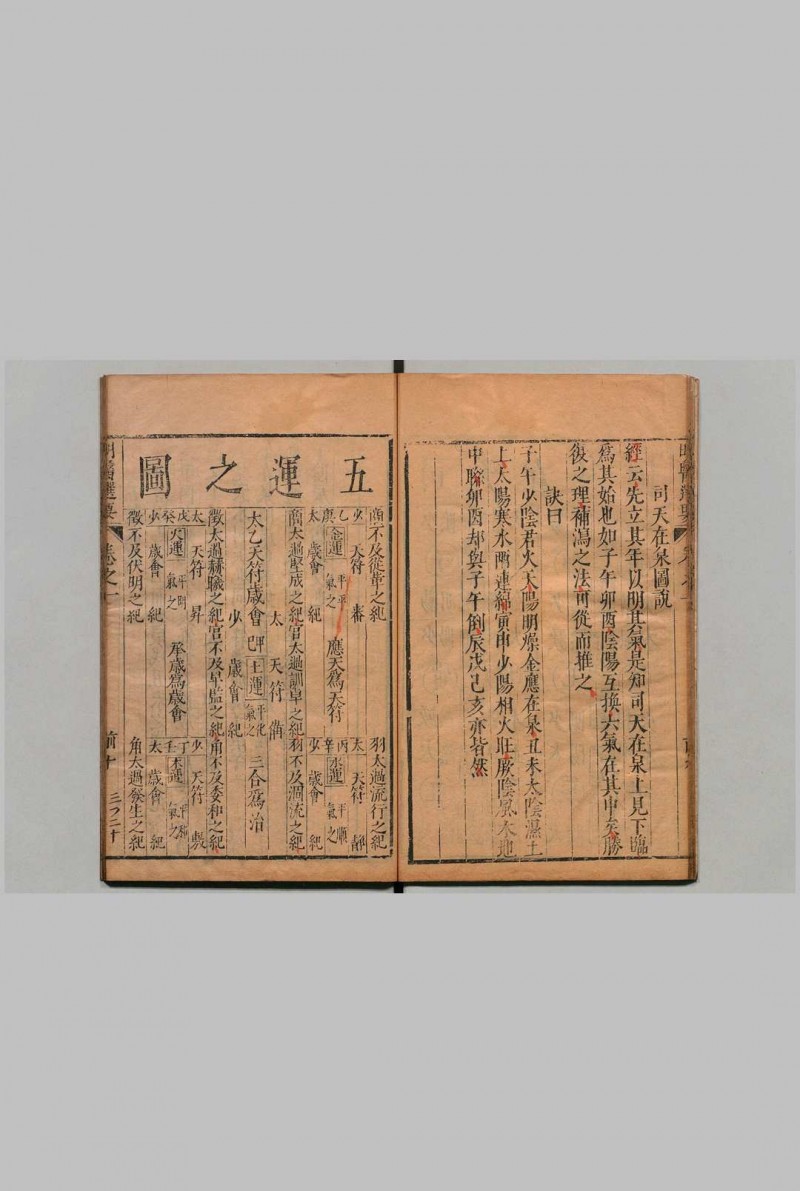 司天在泉圖說
經云先立其年以明其氣是知司天在泉上見下臨
爲其始也如子午卯酉陰陽互換六氣在其中矣勝
復之理補瀉之法可從而推之
訣曰
子午少陰君火天陽明燥金應在泉丑未太陰濕土
上太陽寒水兩連綿寅申少陽相火旺厥陰風木地
中聯卯酉却與子午倒辰戌己亥亦皆然
五運之圖
商不及從革之紀
太 天符 審
乙庚 金運 平氣之 應天爲天符
少 太 歲會 紀
商太過堅成之紀
羽太過流行之紀
太 天符 靜
丙辛 水運 平氣之順
少 歲會 紀
羽不及涸流之紀
宮太過訓阜之紀
太 天符 備
太乙天符歲會 甲己 土運 平氣之化 三合爲治
少 歲會 紀
宮不及卑監之紀
徵太過赫曦之紀
太 天符 昇
戊癸 火運 平氣之明 承歲爲歲會
少 歲會 紀
徵不及伏明之紀
角不及委和之紀
少 天符 敷
丁壬 木運 平氣之
太 歲會 紀
角太過發生之紀
明醫選要
卷之一
前十